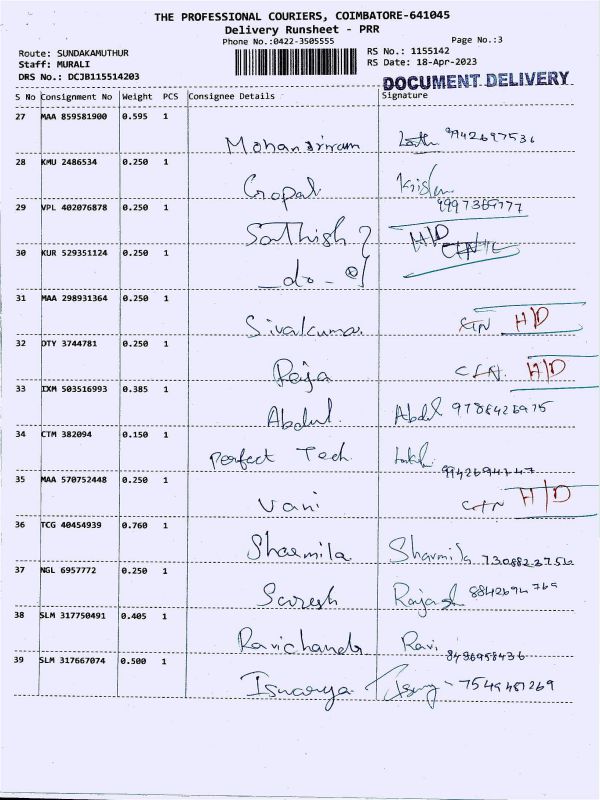 THE PROFESSIONAL COURIERS, COIMBATORE-641045
Delivery Runsheet - PRR
Phone No.:0422-3505555 Page No.:3
Route: SUNDAKAMUTHUR RS No.: 1155142
Staff: MURALI RS Date: 18-Apr-2023
DRS No.: DCJB115514203 DOCUMENT DELIVERY
S No Consignment No Weight PCS Consignee Details Signature
27 MAA 859581900 0.595 1
Mohansriram 9942697536
28 KMU 2486534 0.250 1
Gopal
29 VPL 402076878 0.250 1
Sathish H/D
30 KUR 529351124 0.250 1
- do -
31 MAA 298931364 0.250 1
Sivakumar H/D
32 DTY 3744781 0.250 1
Raja H/D
33 IXM 503516993 0.385 1
Abdul Abdul
34 CTM 382094 0.150 1
Perfect Tech
35 MAA 570752448 0.250 1
Vani H/D
36 TCG 40454939 0.760 1
Sharmila Sharmila 7308822756
37 NGL 6957772 0.250 1
Suresh
38 SLM 317750491 0.405 1
Ravichandr Ravi
8496958436
39 SLM 317667074 0.500 1
Iswarya